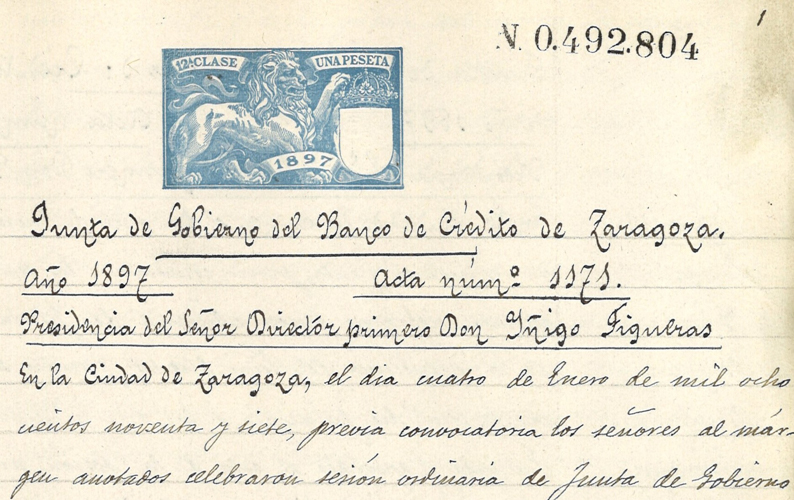 1
N. 0.492.804
12ª CLASE UNA PESETA
1897
Junta de Gobierno del Banco de Crédito de Zaragoza.
Año 1897 Acta núm.º 1171.
Presidencia del Señor Directór primero Don Yñigo Figueras
En la Ciudad de Zaragoza, el dia cuatro de Enero de mil ocho
cientos noventa y siete, prévia convocatoria los señores al már-
gen anotados celebraron sesión ordinaria de Junta de Gobierno